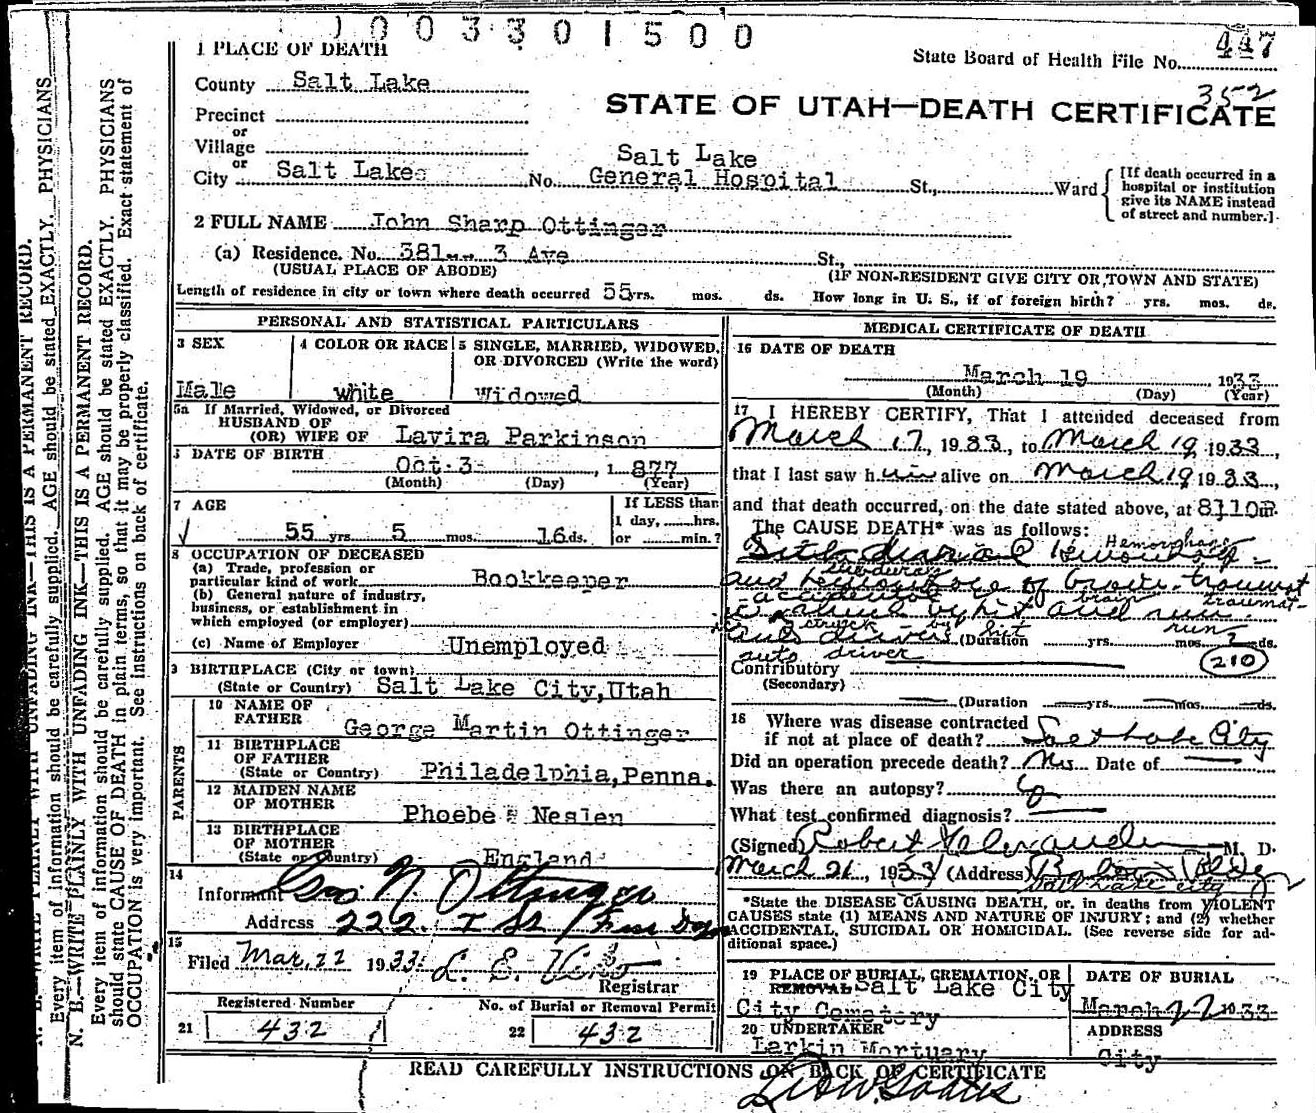 1003301500
1 PLACE OF DEATH
State Board of Health File No. 447
352
County Salt Lake
STATE OF UTAH—DEATH CERTIFICATE
Precinct
or
Village
or
City Salt Lake No. Salt Lake General Hospital St., Ward
[If death occurred in a hospital or institution give its NAME instead of street and number.]
2 FULL NAME John Sharp Ottinger
(a) Residence. No. 381 3 Ave St.,
(USUAL PLACE OF ABODE) (IF NON-RESIDENT GIVE CITY OR TOWN AND STATE)
Length of residence in city or town where death occurred 55 yrs. mos. ds. How long in U. S., if of foreign birth? yrs. mos. ds.
PERSONAL AND STATISTICAL PARTICULARS
3 SEX Male
4 COLOR OR RACE white
5 SINGLE, MARRIED, WIDOWED, OR DIVORCED (Write the word) Widowed
5a If Married, Widowed, or Divorced
HUSBAND OF
(OR) WIFE OF Lavira Parkinson
DATE OF BIRTH Oct 3 , 1 877
(Month) (Day) (Year)
7 AGE 55 yrs 5 mos. 16 ds.
If LESS than
1 day, hrs.
or min.?
8 OCCUPATION OF DECEASED
(a) Trade, profession or
particular kind of work Bookkeeper
(b) General nature of industry,
business, or establishment in
which employed (or employer)
(c) Name of Employer Unemployed
9 BIRTHPLACE (City or town)
(State or Country) Salt Lake City, Utah
PARENTS
10 NAME OF
FATHER George Martin Ottinger
11 BIRTHPLACE
OF FATHER
(State or Country) Philadelphia, Penna.
12 MAIDEN NAME
OF MOTHER Phoebe Neslen
13 BIRTHPLACE
OF MOTHER
(State or Country) England
14
Informant Geo N Ottinger
Address 222 I St
15
Filed Mar. 22 1933
Registrar
Registered Number
21 432
No. of Burial or Removal Permit
22 432
MEDICAL CERTIFICATE OF DEATH
16 DATE OF DEATH
March 19 1933
(Month) (Day) (Year)
17 I HEREBY CERTIFY, That I attended deceased from
March 17, 1933, to March 19 1933,
that I last saw him alive on March 19 1933,
and that death occurred, on the date stated above, at 8:10 m.
The CAUSE DEATH* was as follows:
Hemorrhage
and brain traumat-
struck by hit run
auto driver (Duration yrs. mos. ds.
210
Contributory
(Secondary)
(Duration yrs. mos. ds.
18 Where was disease contracted
if not at place of death? Salt Lake City
Did an operation precede death? No Date of
Was there an autopsy?
What test confirmed diagnosis?
(Signed) Robert Alexander M. D.
March 21, 1933 (Address) Boston Bldg
Salt Lake City
*State the DISEASE CAUSING DEATH, or, in deaths from VIOLENT
CAUSES state (1) MEANS AND NATURE OF INJURY; and (2) whether
ACCIDENTAL, SUICIDAL OR HOMICIDAL. (See reverse side for ad-
ditional space.)
19 PLACE OF BURIAL, CREMATION, OR
REMOVAL Salt Lake City
City Cemetery
DATE OF BURIAL
March 22 1933
20 UNDERTAKER
Larkin Mortuary
ADDRESS
City
READ CAREFULLY INSTRUCTIONS ON BACK OF CERTIFICATE
N. B.—WRITE PLAINLY WITH UNFADING INK—THIS IS A PERMANENT RECORD.
Every item of information should be carefully supplied. AGE should be stated EXACTLY. PHYSICIANS
N. B.—WRITE PLAINLY WITH UNFADING INK—THIS IS A PERMANENT RECORD.
Every item of information should be carefully supplied. AGE should be stated EXACTLY. PHYSICIANS
should state CAUSE OF DEATH in plain terms, so that it may be properly classified. Exact statement of
OCCUPATION is very important. See instructions on back of certificate.